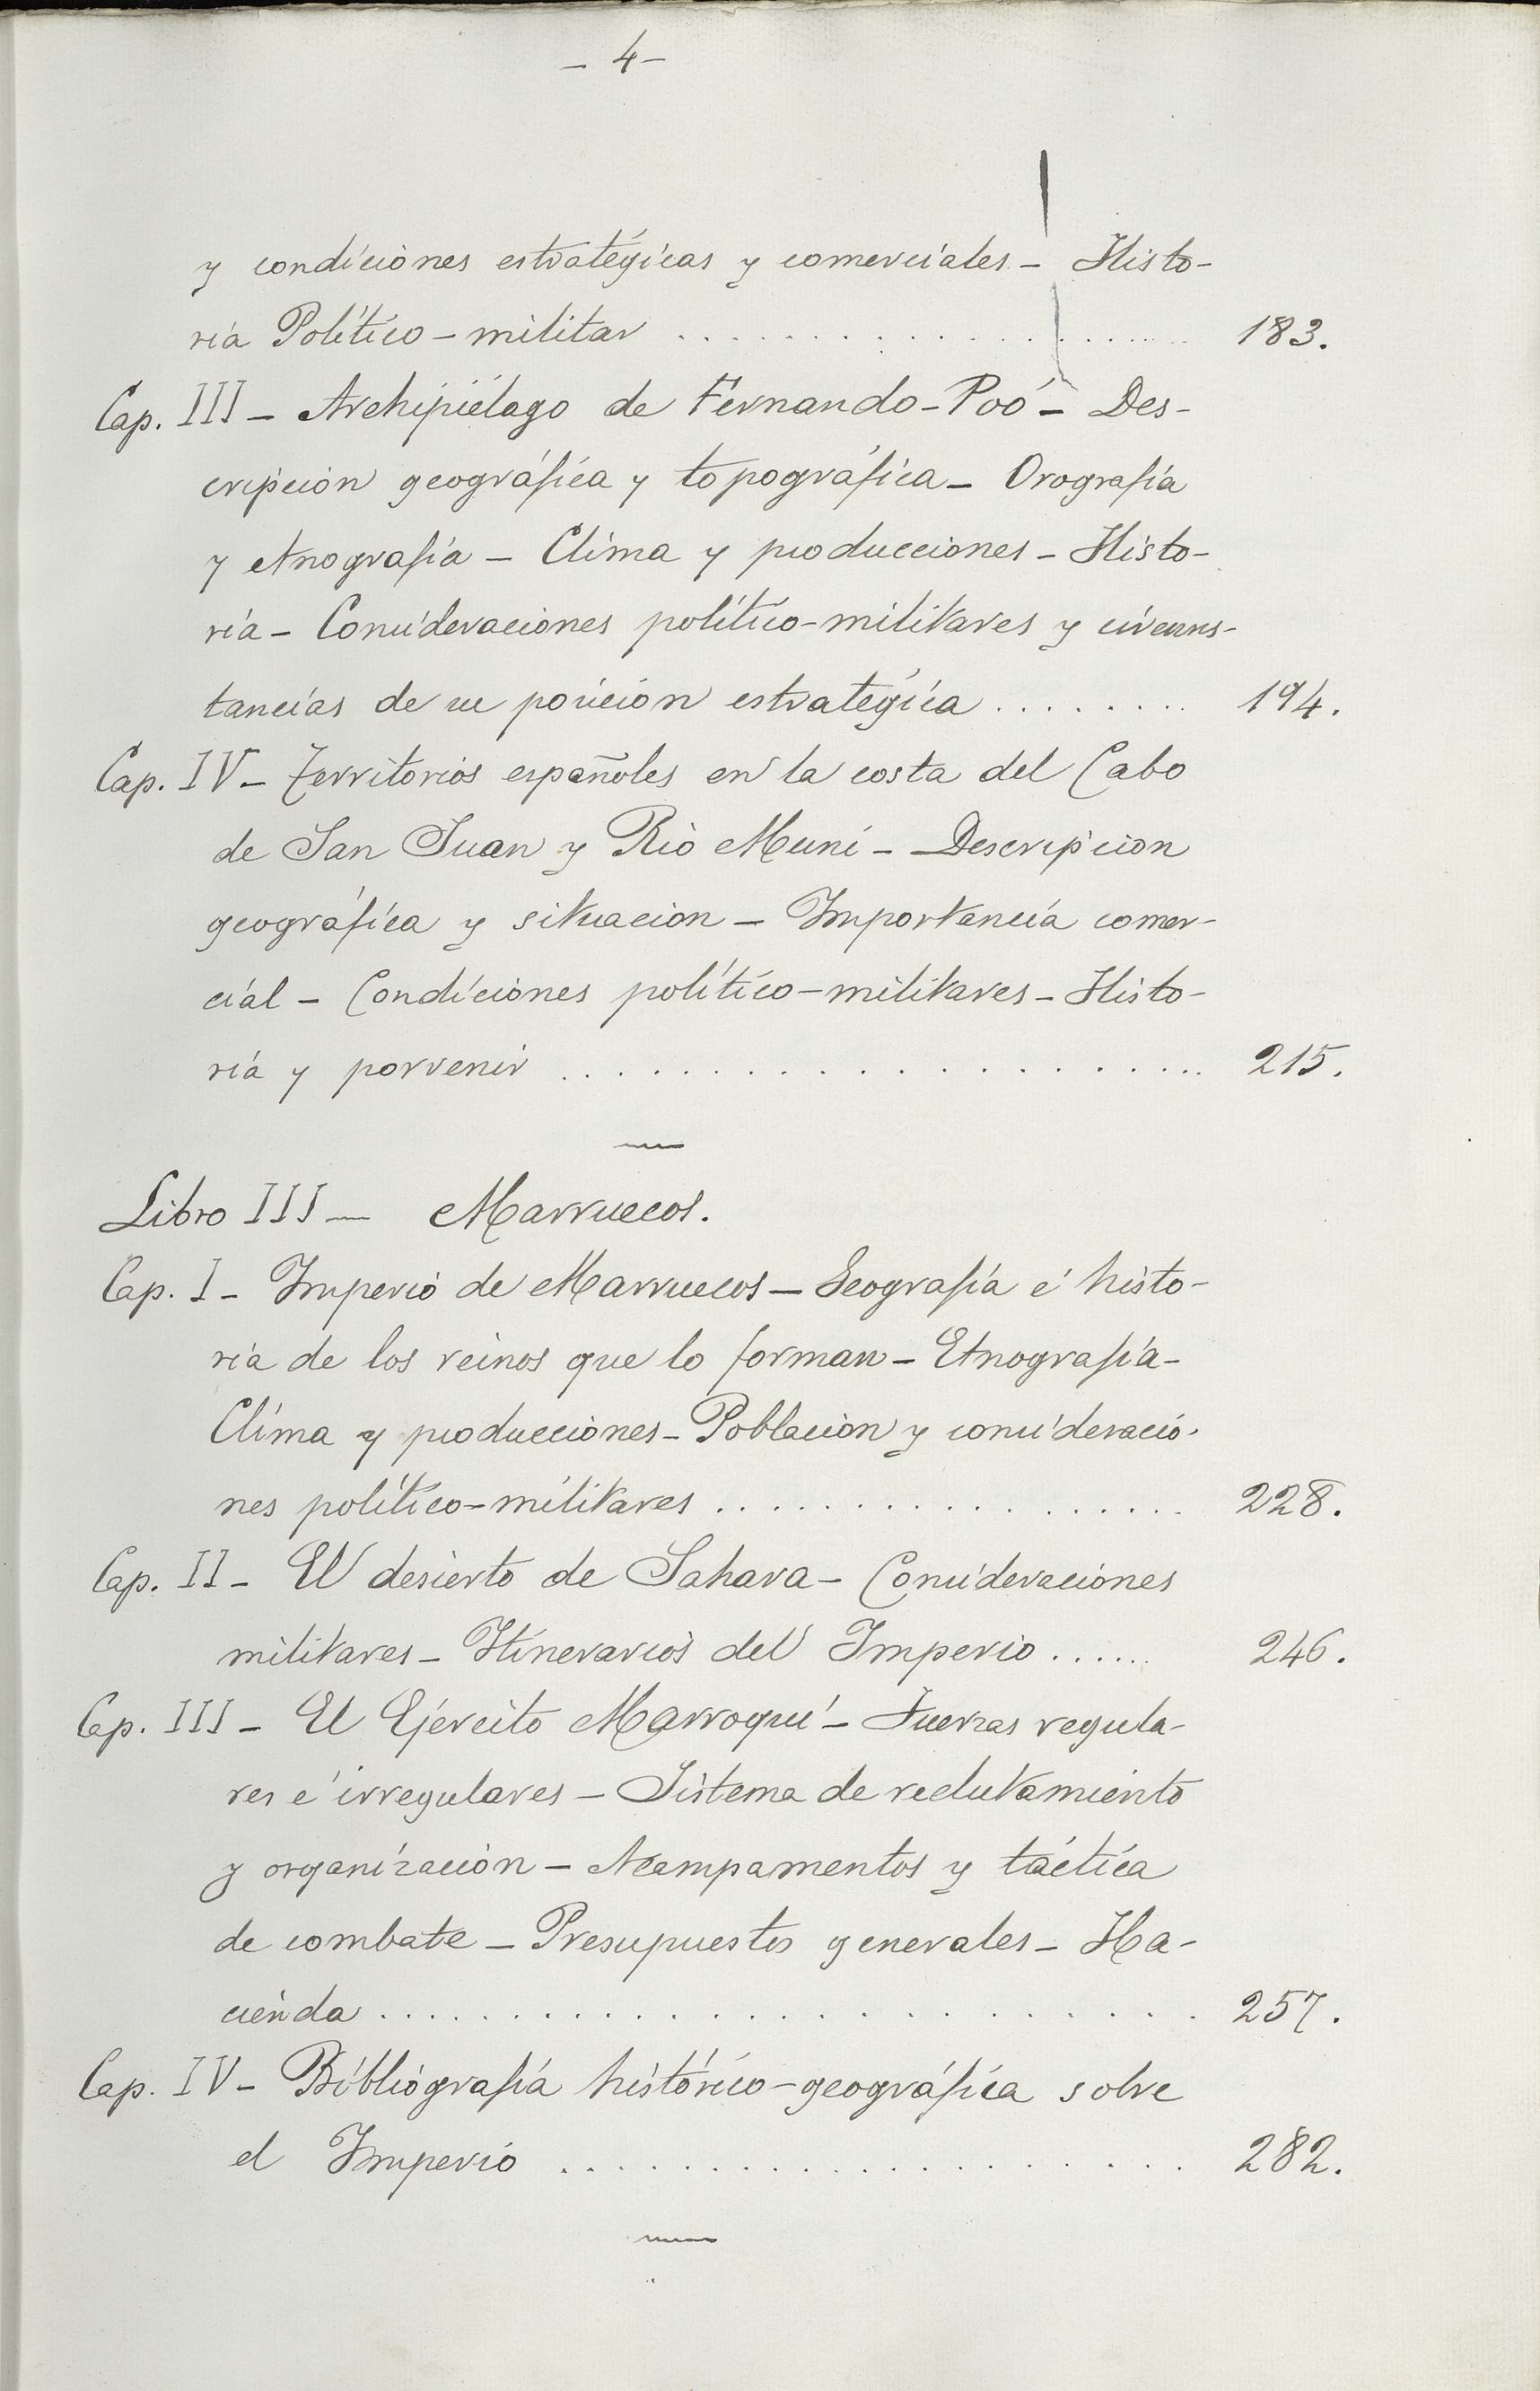 - 4 -
y condiciones estratégicas y comerciales - Histo-
ria Político-militar . . . . . . . . . . . . . . . . . . 183.
Cap. III - Archipiélago de Fernando-Poó - Des-
cripción geográfica y topográfica - Orografía
y etnografía - Clima y producciones - Histo-
ria - Consideraciones político-militares y circuns-
tancias de su posición estratégica . . . . . . . . 194.
Cap. IV - Territorios españoles en la costa del Cabo
de San Juan y Rio Muni - Descripcion
geográfica y situacion - Importancia comer-
cial - Condiciones político-militares - Histo-
ria y porvenir . . . . . . . . . . . . . . . . . . . . . . 215.
Libro III - Marruecos.
Cap. I - Imperio de Marruecos - Geografía é histo-
ria de los reinos que lo forman - Etnografía -
Clima y producciones - Poblacion y consideracio-
nes político-militares . . . . . . . . . . . . . . . . . . 228.
Cap. II - El desierto de Sahara - Consideraciones
militares - Itinerarios del Imperio . . . . . . 246.
Cap. III - El Ejército Marroquí - Fuerzas regula-
res é irregulares - Sistema de reclutamiento
y organización - Acampamentos y táctica
de combate - Presupuestos generales - Ha-
cienda . . . . . . . . . . . . . . . . . . . . . . . . . . 257.
Cap. IV - Bibliografía histórico-geográfica sobre
el Imperio . . . . . . . . . . . . . . . . . . . . . 282.